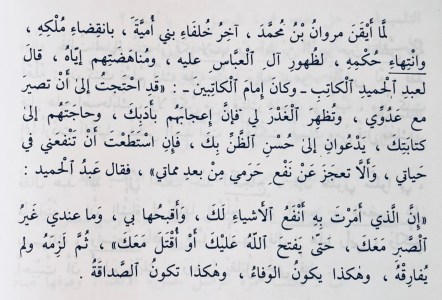 لمَّا أَيْقَنَ مروانُ بْنُ مُحمَّدَ ، آخِرُ خُلفَاءِ بني أُميَّةَ ، بانقضاءِ مُلْكِهِ ،
وانْتِهاءِ حُكْمِهِ ، لظُهورِ آلِ الْعبَّاسِ عليه ، ومُناهَضَتِهم إيَّاهُ ، قالَ
لعبدِ الْحميدِ الْكاتِبِ ـ وكانَ إمامَ الْكاتِبينَ ـ : «قَدِ احْتجتُ إلى أَنْ تصيرَ
مع عدُوِّي ، وتُظهِرَ الْغَدْرَ لي فإنَّ إعجابَهُم بأَدبِكَ ، وحاجَتَهُم إلى
كتابَتِكَ ، يَدْعُوانِ إلى حُسْنِ الظَّنِّ بِكَ ، فَإِنِ اسْتَطَعْتَ أَنْ تنْفَعَني في
حَياتي ، وَأَلَّا تعجَزَ عَنْ نَفْعِ حَرَمي مِنْ بعدِ مماتي» ، فقال عَبدُ الْحميد :
«إنَّ الَّذي أَمَرْتَ بِهِ أَنْفَعُ الأَشياءِ لَكَ ، وَأَقبَحُها بي ، وَما عندي غَيرُ
الصَّبرِ مَعَكَ ، حَتَّى يفتَحَ اللّهُ عَلَيْكَ أَوْ أُقْتَلَ مَعَكَ» ، ثُمَّ لَزِمَهُ ولم
يُفارِقْهُ ، وهكذا يكونُ الوفاءُ ، وهكذا تكونُ الصَّداقَةُ .